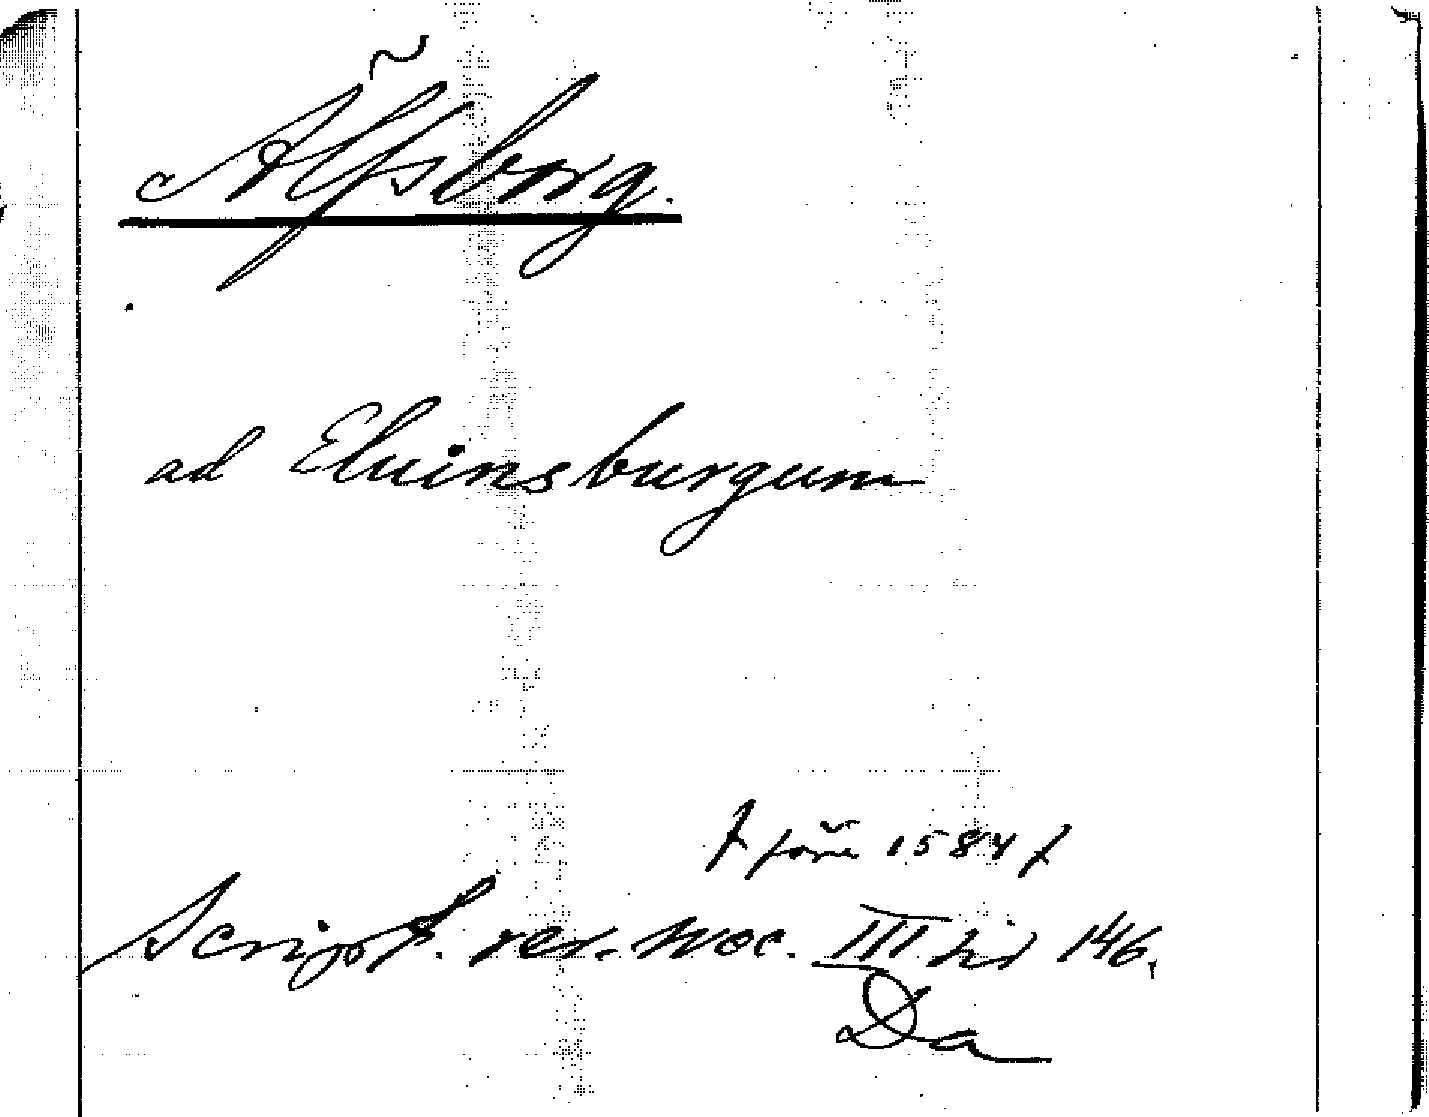 Älfsborg.
ad Eluinsburgum
före 1584
Script. rer. svec. III sid 146.
Da